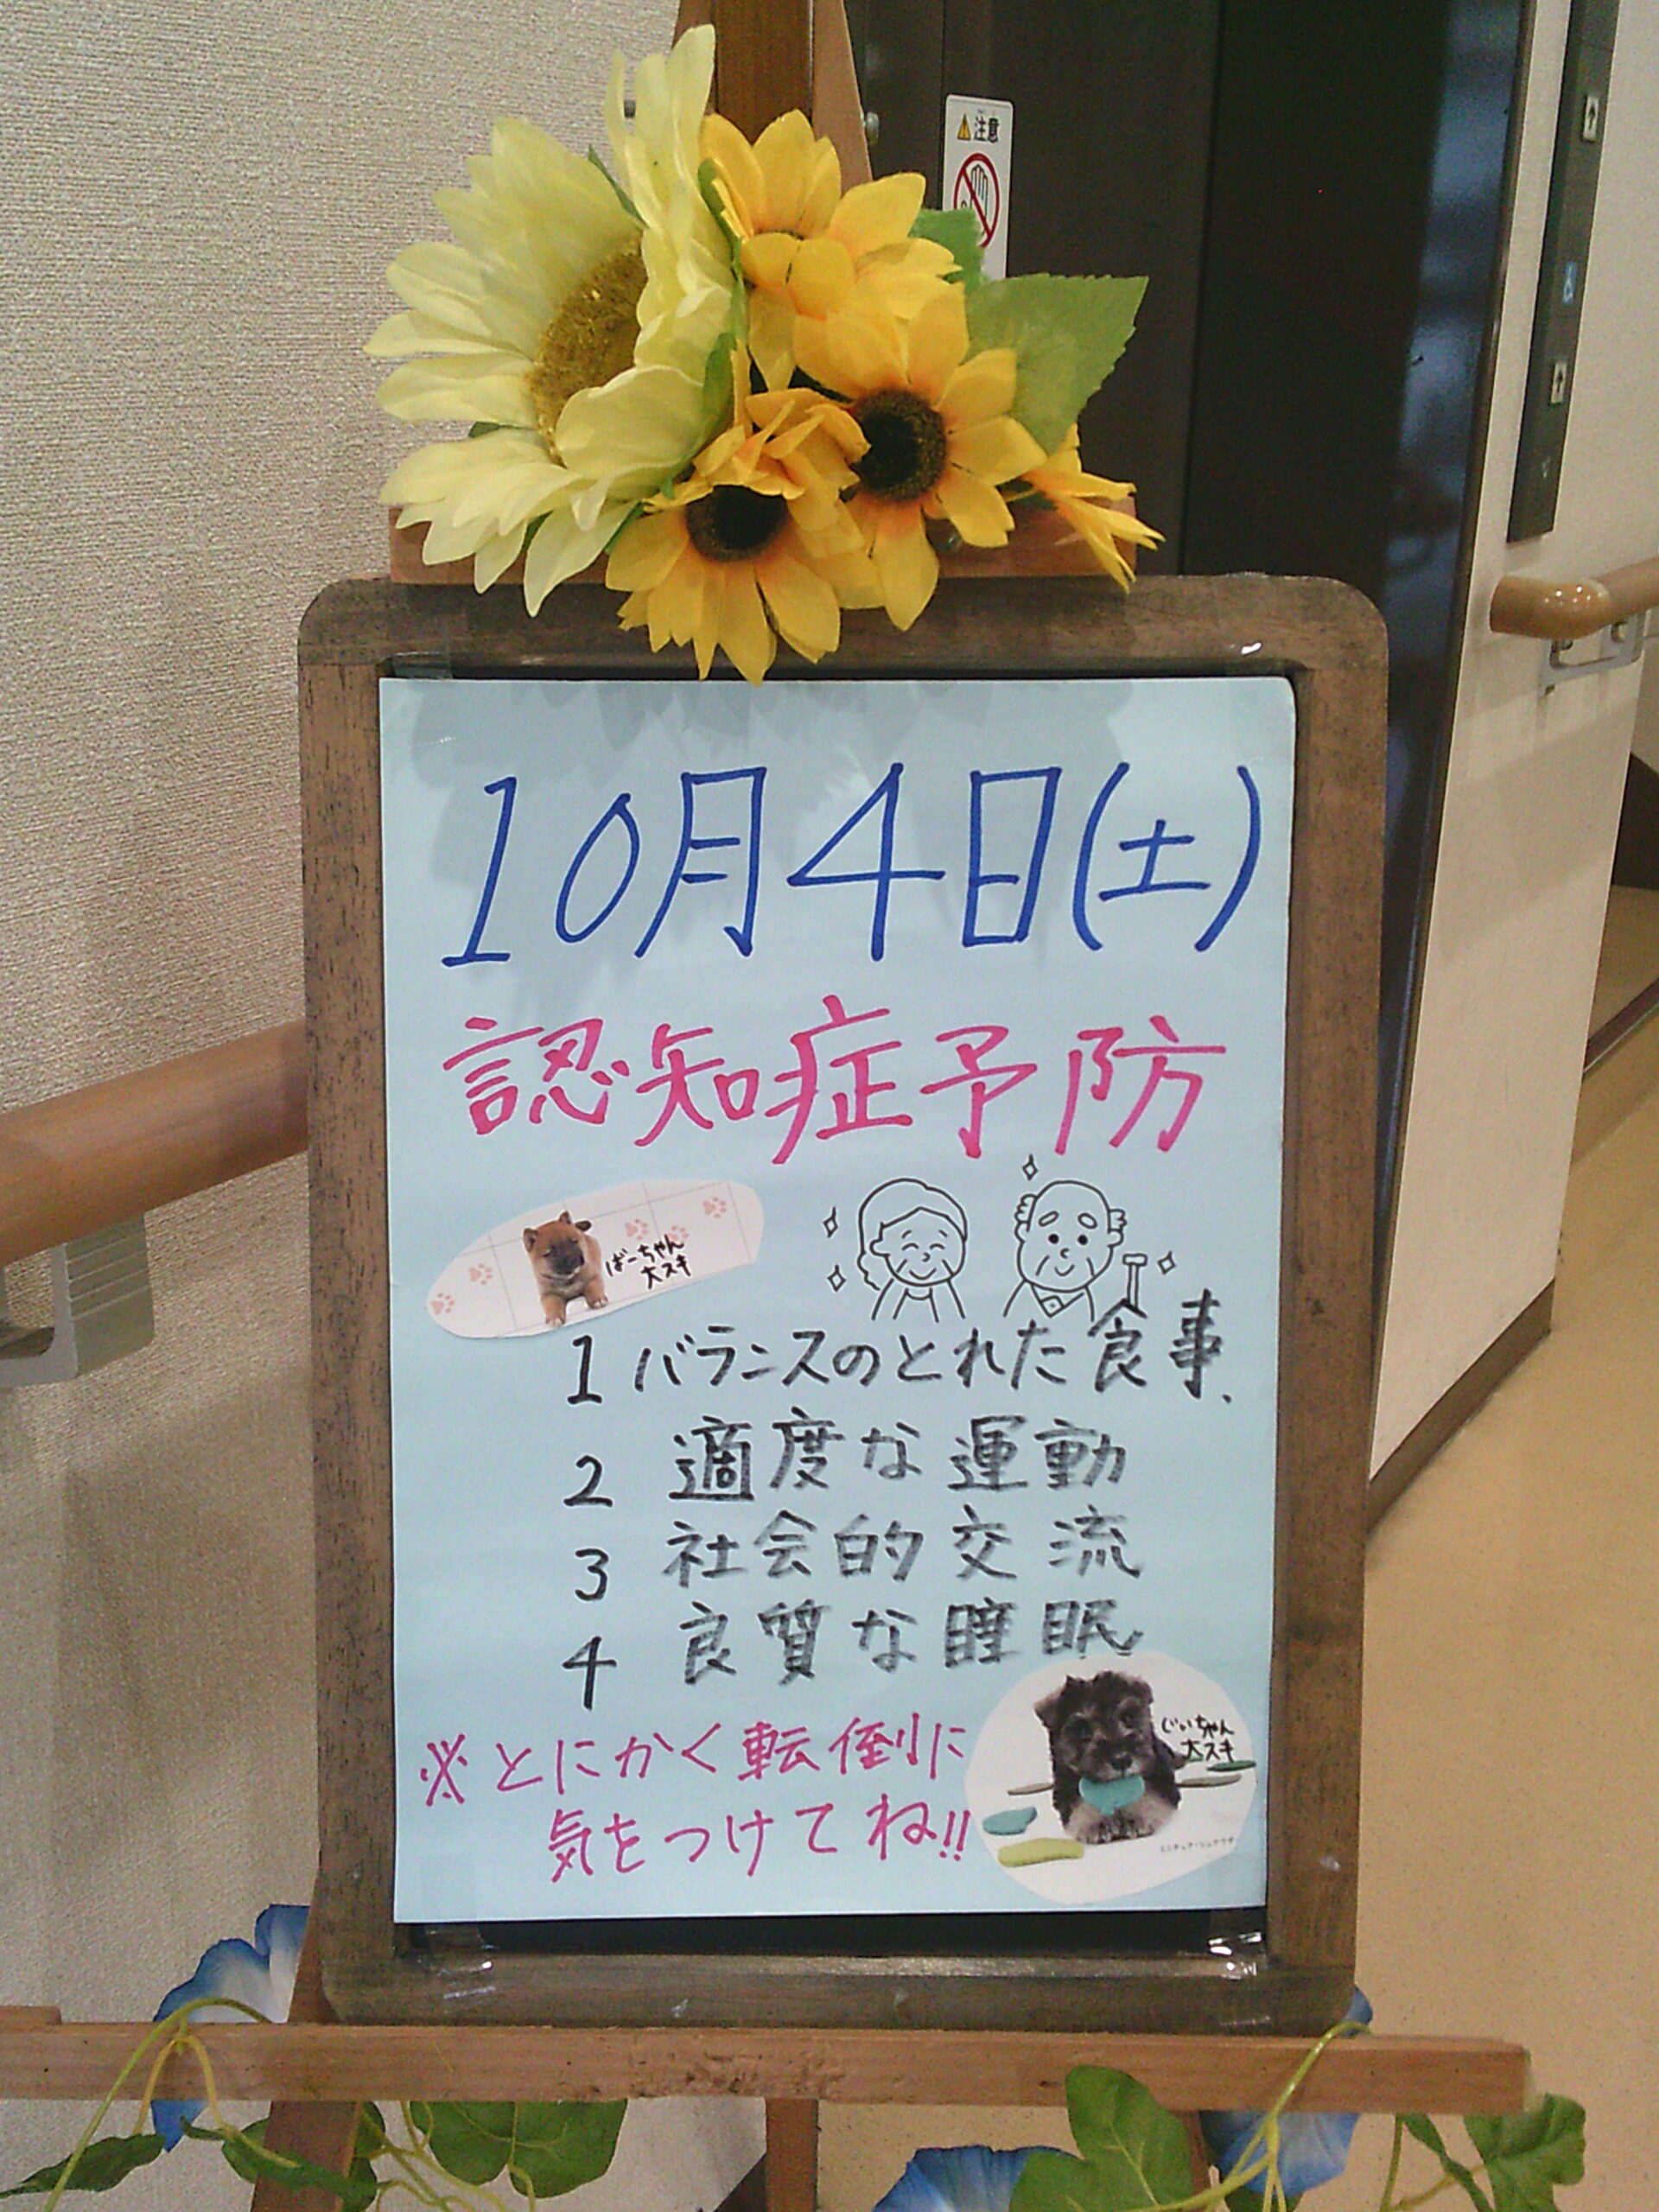 注意
10月4日(土)
認知症予防
ばーちゃん
大スキ
1 バランスのとれた食事、
2 適度な運動
3 社会的交流
4 良質な睡眠
※とにかく転倒に
気をつけてね!!
じぃちゃん
大スキ
ミニチュア・シュナウザー